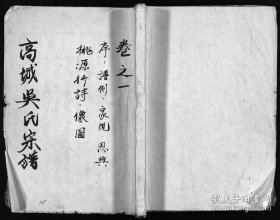 卷之一
序·譜例·家規 恩典
桃源行詩·像圖
高城吳氏宗譜